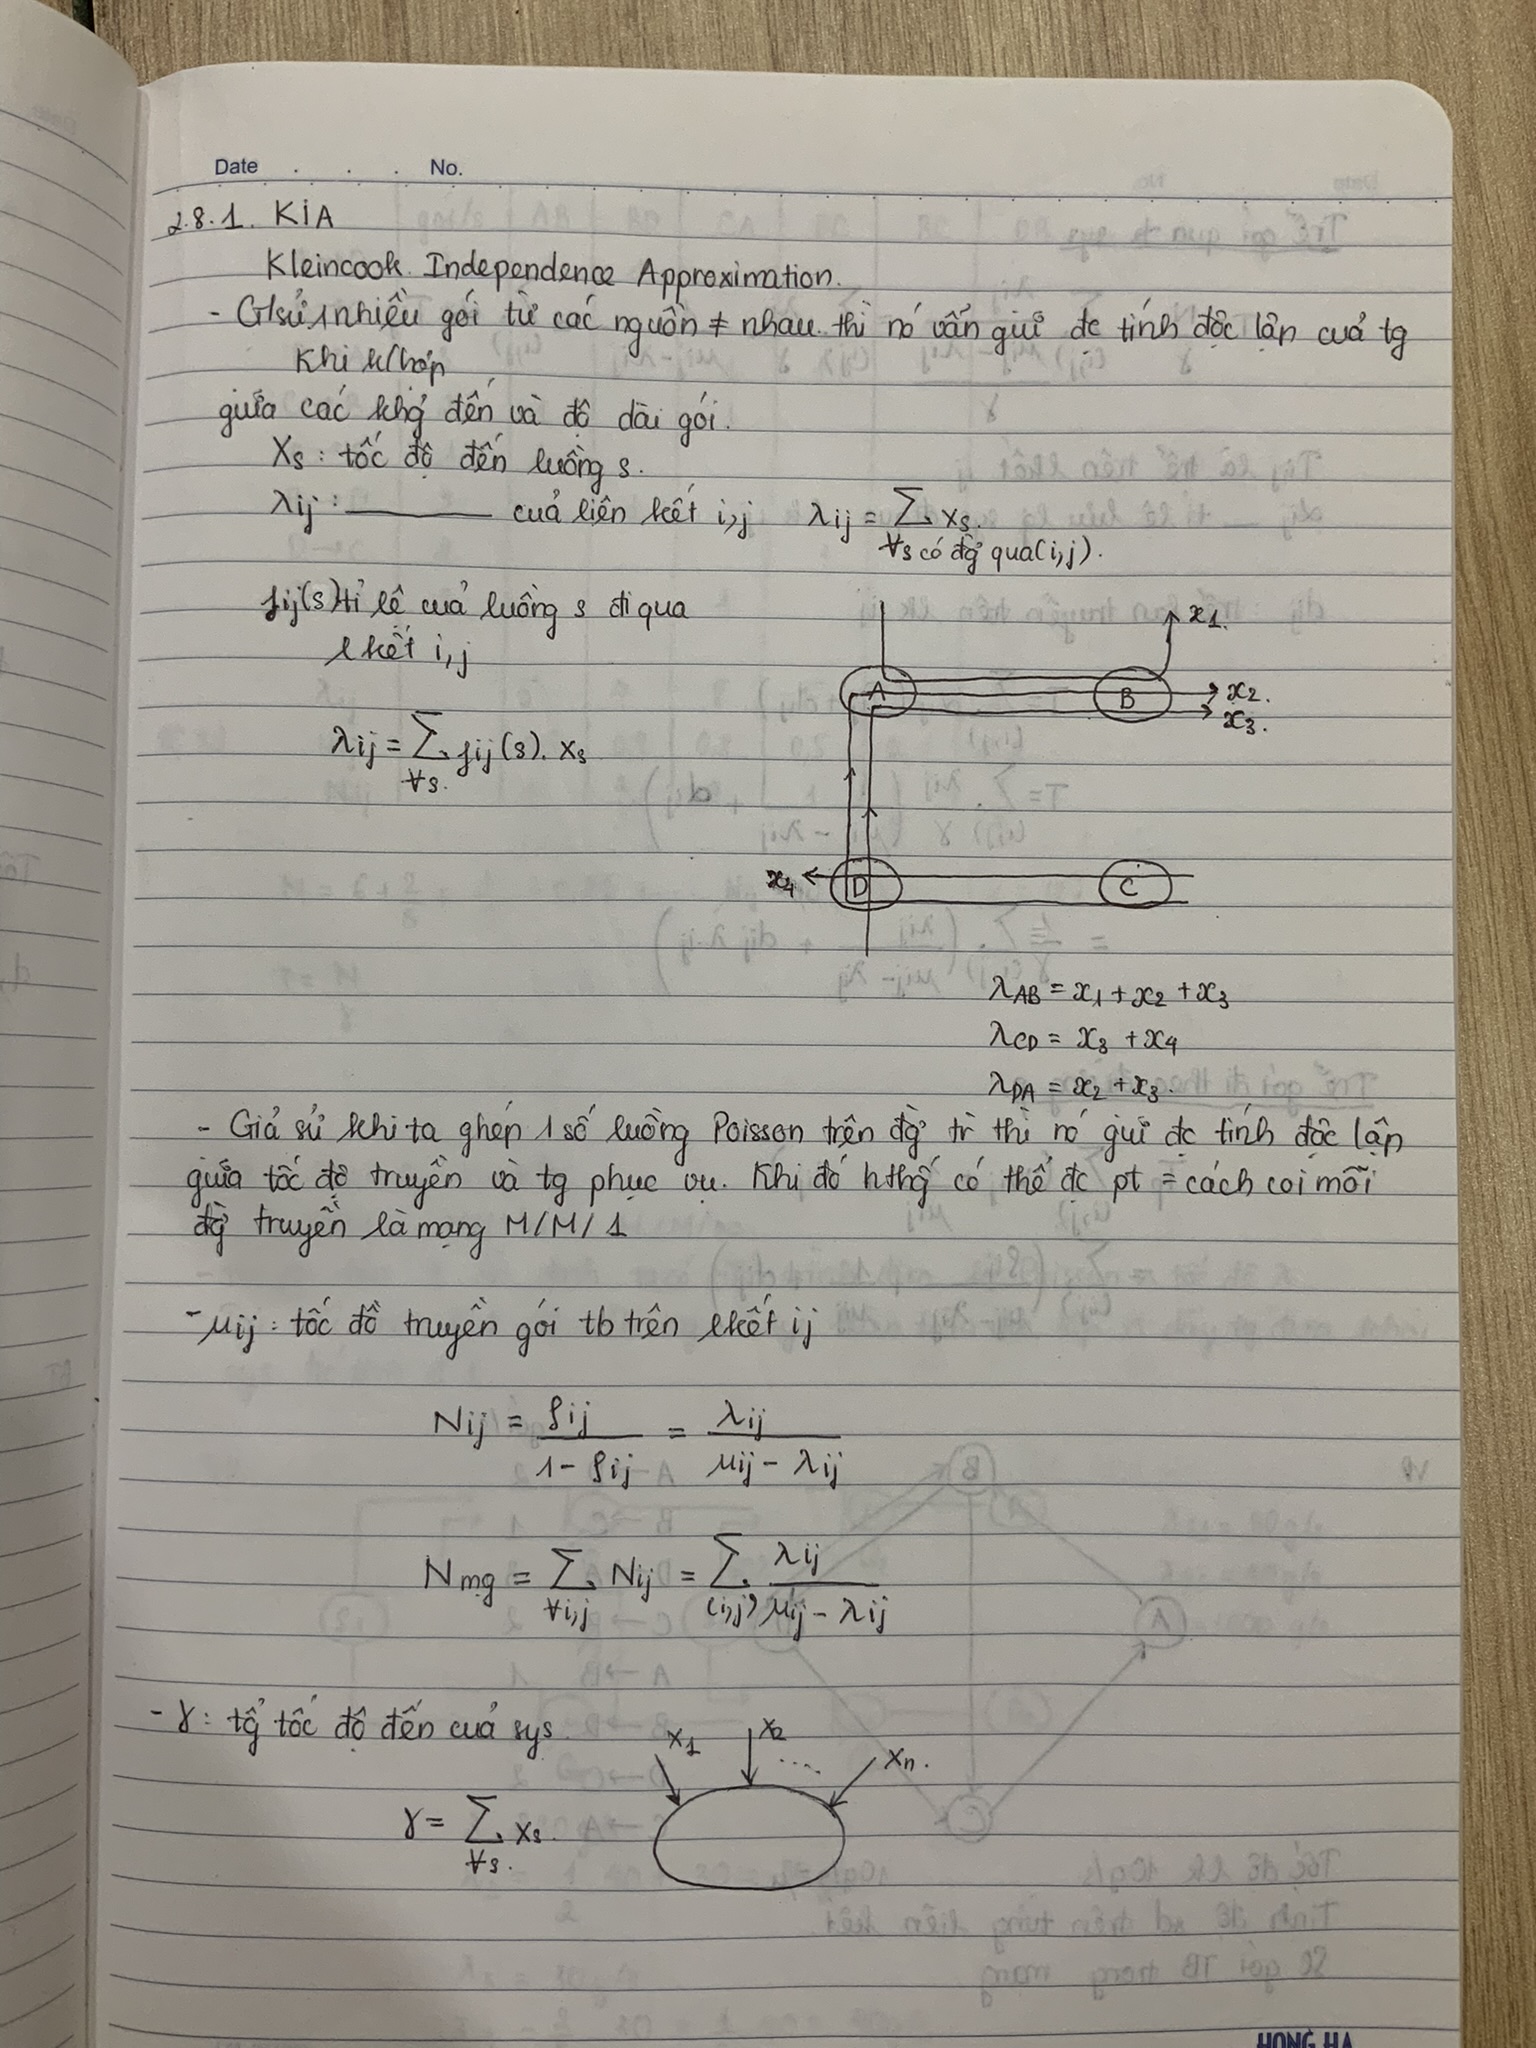 Date . . . No.
2.8.1. KiA
Kleincook Independence Approximation.
- G/sử nhiều gói từ các nguồn ≠ nhau thì nó vẫn giữ đc tính độc lập cuả tg
Khi k/hợp
giữa các khg đến và độ dài gói.
Xs : tốc độ đến luồng s.
λij : ______ cuả liên kết i,j λij = ∑ xs.
∀s có đg̀ qua(i,j).
fij(s) tỉ lệ cuả luồng s đi qua
lkết i,j
x1.
A B x2.
x3.
λij = ∑ fij(s). xs
∀s.
x4 D C
λAB = x1 + x2 + x3
λCD = x3 + x4
λDA = x2 + x3.
- Giả sử khi ta ghép 1 số luồng Poisson trên đg̀ tr̀ thì nó giữ đc tính độc lập
giữa tốc độ truyền và tg phục vụ. Khi đó hthg có thể đc pt = cách coi mỗi
đg̀ truyền là mạng M/M/1
- μij : tốc độ truyền gói tb trên lkết ij
Nij = ρij / (1 - ρij) = λij / (μij - λij)
Nmg = ∑ Nij = ∑ λij / (μij - λij)
∀i,j (i,j)
- γ : tg̉ tốc độ đến cuả sys
x1 x2 .... xn.
γ = ∑ xs.
∀s.
HONG HA